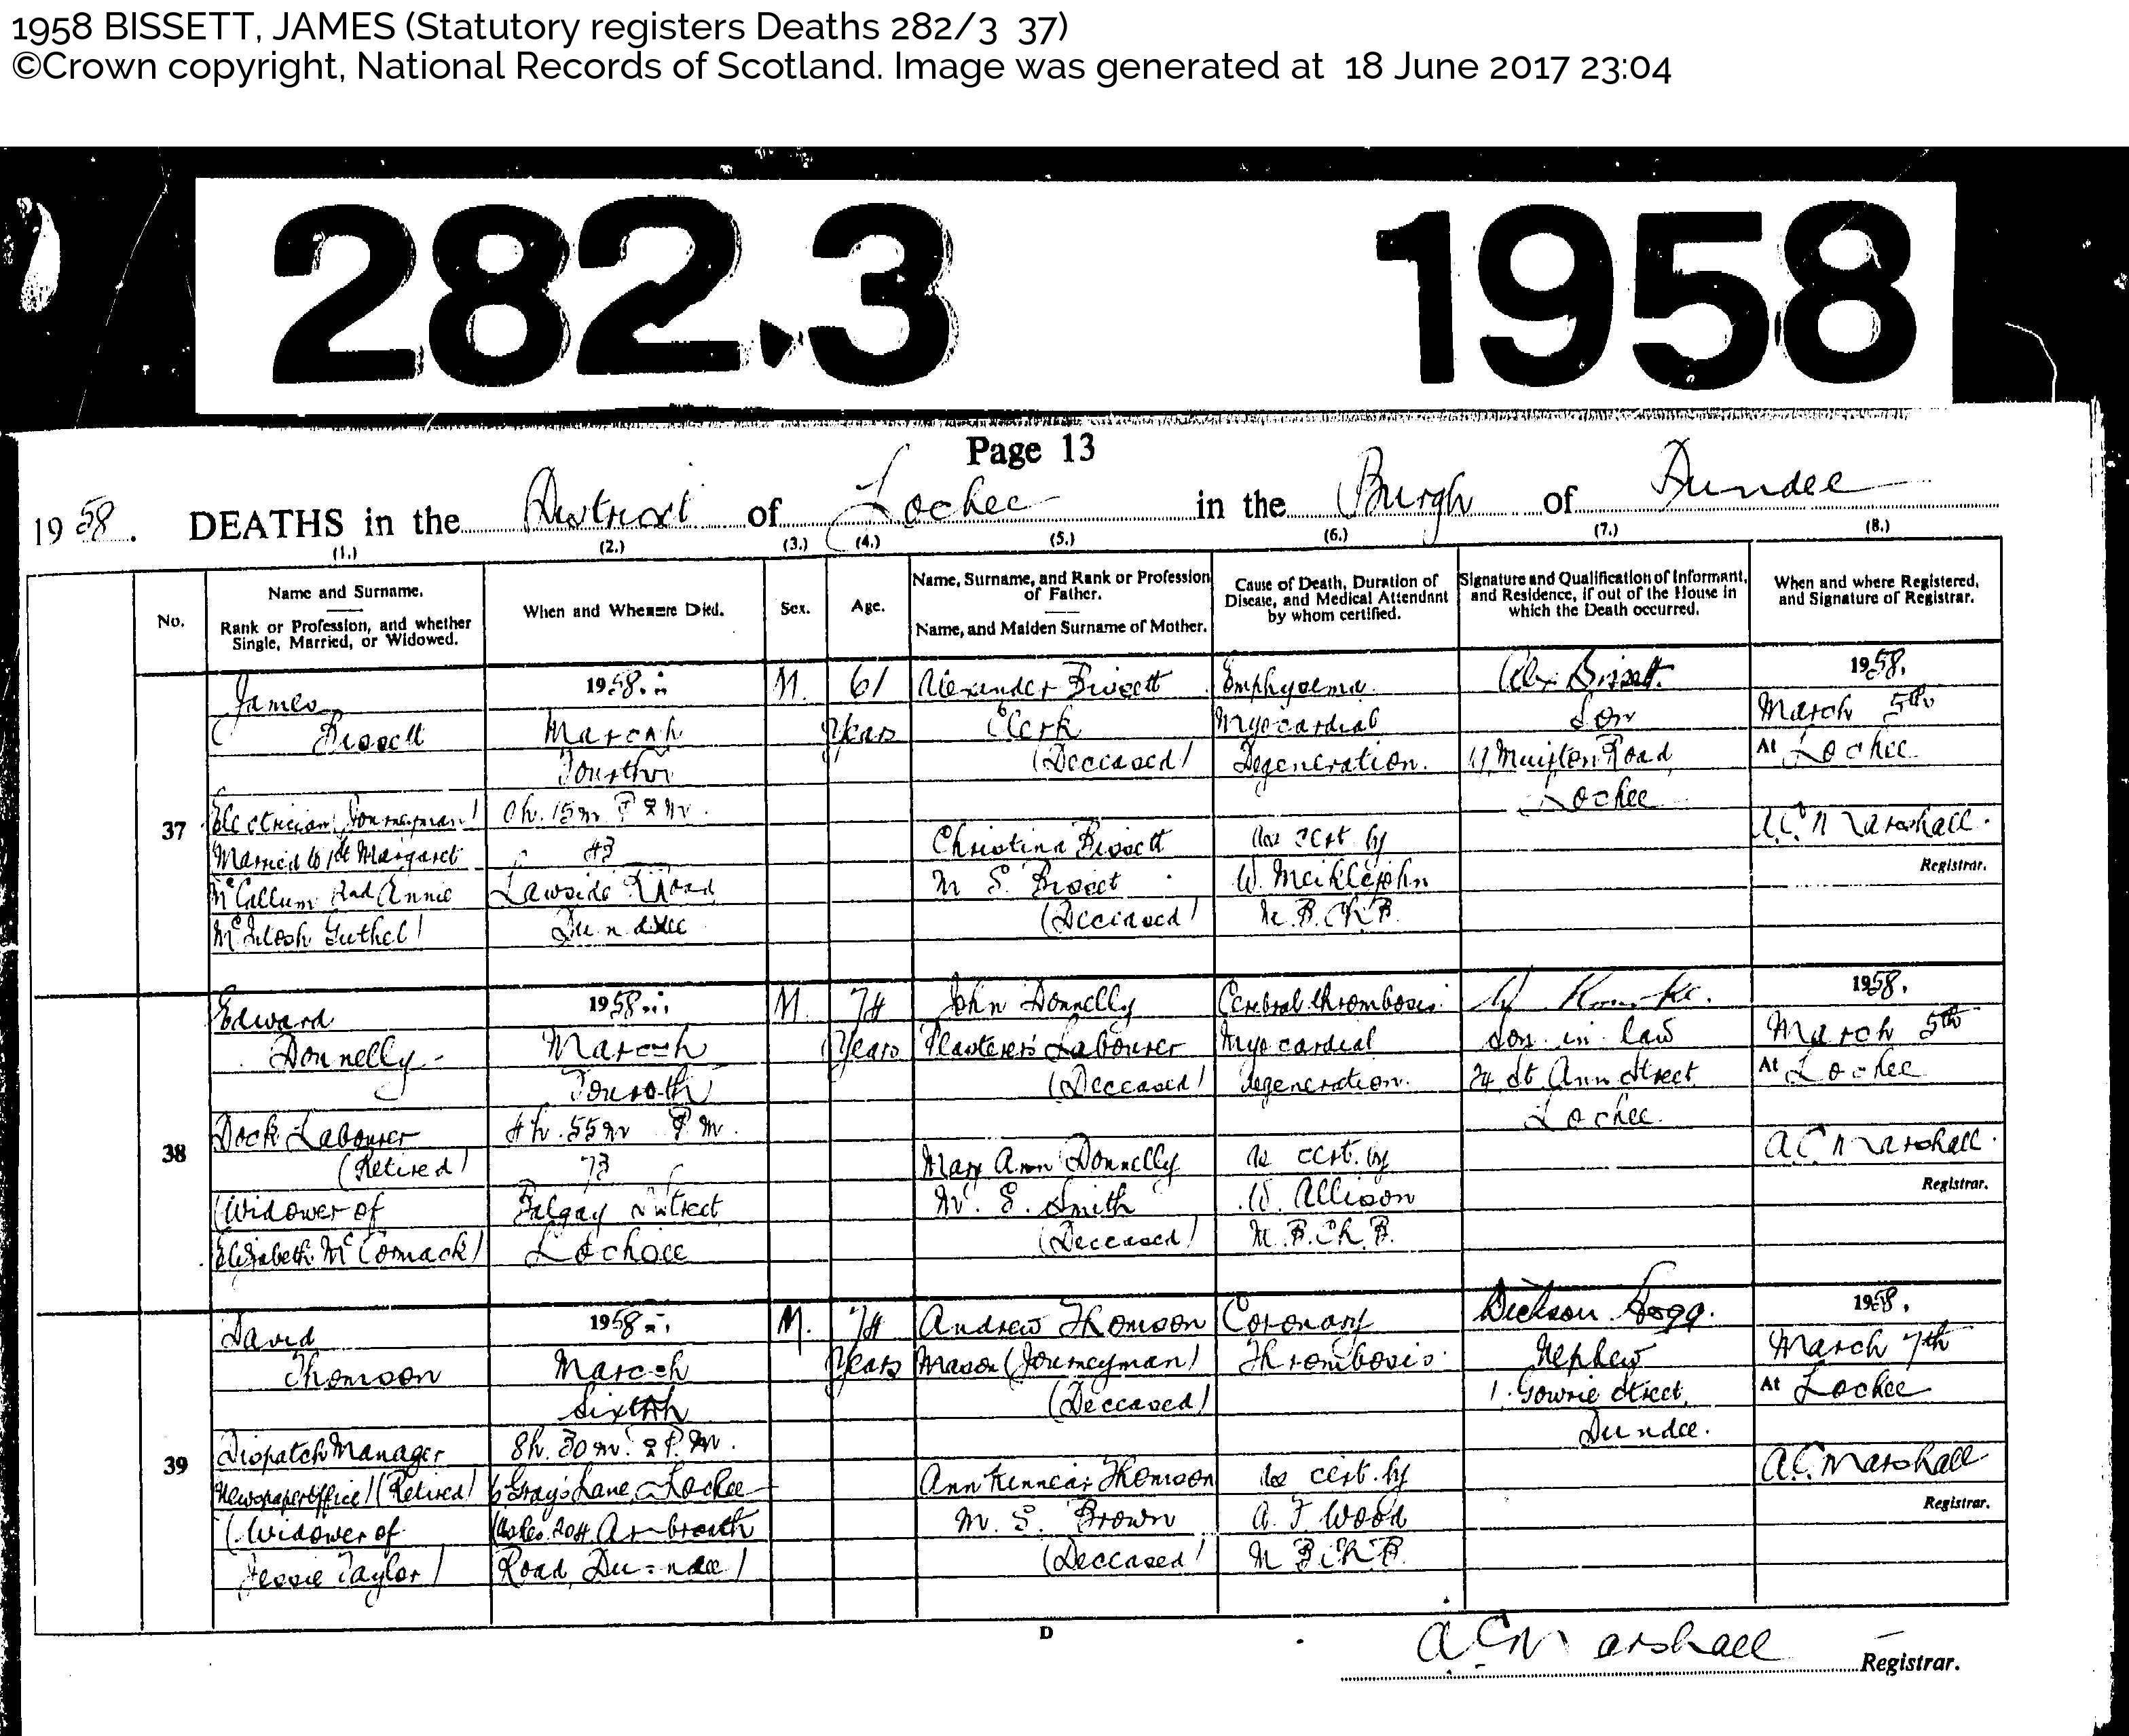 1958 BISSETT, JAMES (Statutory registers Deaths 282/3 37)
©Crown copyright, National Records of Scotland. Image was generated at 18 June 2017 23:04
282.3 1958
Page 13
1958. DEATHS in the District of Lochee in the Burgh of Dundee
(1.) (2.) (3.) (4.) (5.) (6.) (7.) (8.)
No.
Name and Surname.
Rank or Profession, and whether
Single, Married, or Widowed.
When and Where Died.
Sex.
Age.
Name, Surname, and Rank or Profession
of Father.
Name, and Maiden Surname of Mother.
Cause of Death, Duration of
Disease, and Medical Attendant
by whom certified.
Signature and Qualification of Informant,
and Residence, if out of the House in
which the Death occurred.
When and where Registered,
and Signature of Registrar.
37
James
Bissett
Electrician (Journeyman)
(Married to 1st Margaret
McCallum 2nd Annie
McIntosh Guthel)
1958.
March
Fourth
0h. 15m P M.
43
Lawside Road
Dundee
M.
61
Years
Alexander Bissett
Clerk
(Deceased)
Christina Bissett
M S. Bisset
(Deceased)
Emphysema.
Myocardial
Degeneration.
As cert by
W. Meiklejohn
M.B.Ch.B.
Alex Bissett.
Son
Muirton Road
Lochee
1958.
March 5th
At Lochee
A.C. Marshall.
Registrar.
38
Edward
Donnelly
Dock Labourer
(Retired)
(Widower of
Elizabeth McComack)
1958.
March
Fourth
4h. 55m P.M.
73
Balgay Street
Lochee
M.
74
Years
John Donnelly
Plasterer's Labourer
(Deceased)
Mary Ann Donnelly
M. S. Smith
(Deceased)
Cerebral thrombosis.
Myocardial
degeneration.
As cert. by
W. Allison
M.B.Ch.B.
Son in law
74 St Ann Street
Lochee.
1958.
March 5th
At Lochee
A.C. Marshall.
Registrar.
39
David
Thomson
Dispatch Manager
Newspaper Office) (Retired)
(Widower of
Jessie Taylor)
1958.
March
Sixth
8h. 30m. P.M.
6 Gray's Lane, Lochee
(Us. Res. 204 Arbroath
Road, Dundee)
M.
74
Years
Andrew Thomson
Mason (Journeyman)
(Deceased)
Ann Kinnear Thomson
M. S. Brown
(Deceased)
Coronary
Thrombosis.
As cert. by
A. F Wood
M B.Ch.B.
Dickson Hogg.
Nephew
1. Gowrie Street,
Dundee.
1958.
March 7th
At Lochee
A.C. Marshall
Registrar.
D
A.C. Marshall
Registrar.